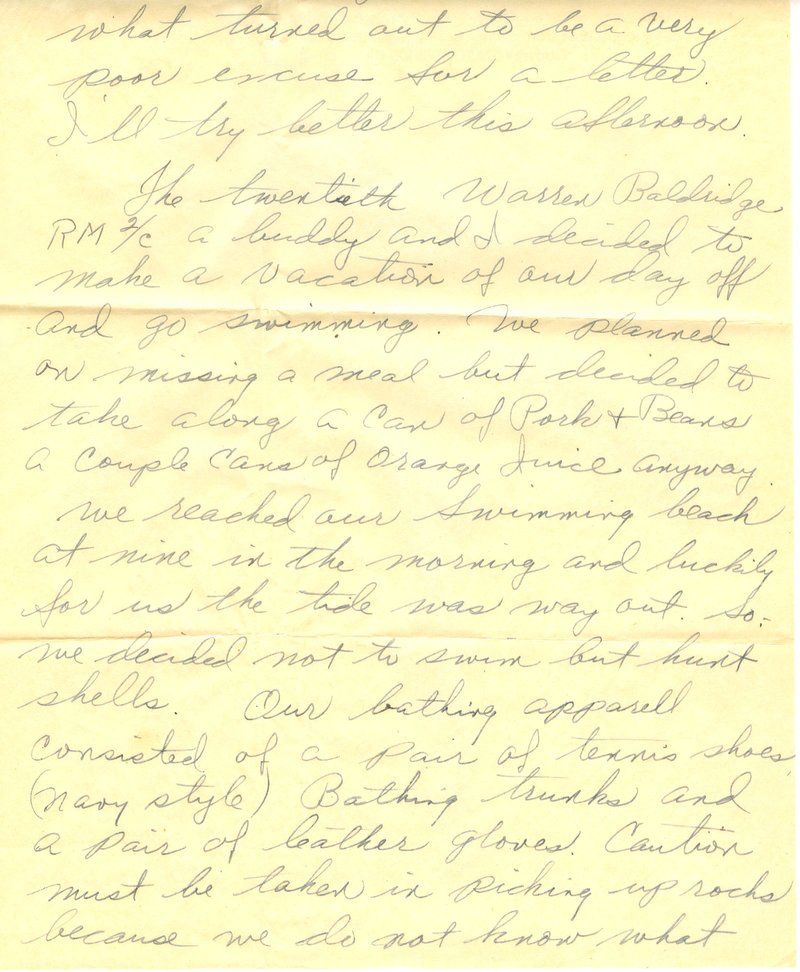 what turned out to be a very
poor excuse for a letter.
I'll try better this afternoon.
The twentieth Warren Baldridge
RM 2/c a buddy and I decided to
make a vacation of our day off
and go swimming. We planned
on missing a meal but decided to
take along a can of Pork & Beans
a couple cans of Orange Juice anyway.
We reached our swimming beach
at nine in the morning and luckily
for us the tide was way out. So-
we decided not to swim but hunt
shells. Our bathing apparell
consisted of a pair of tennis shoes,
(navy style) Bathing trunks and
a pair of leather gloves. Caution
must be taken in picking up rocks
because we do not know what